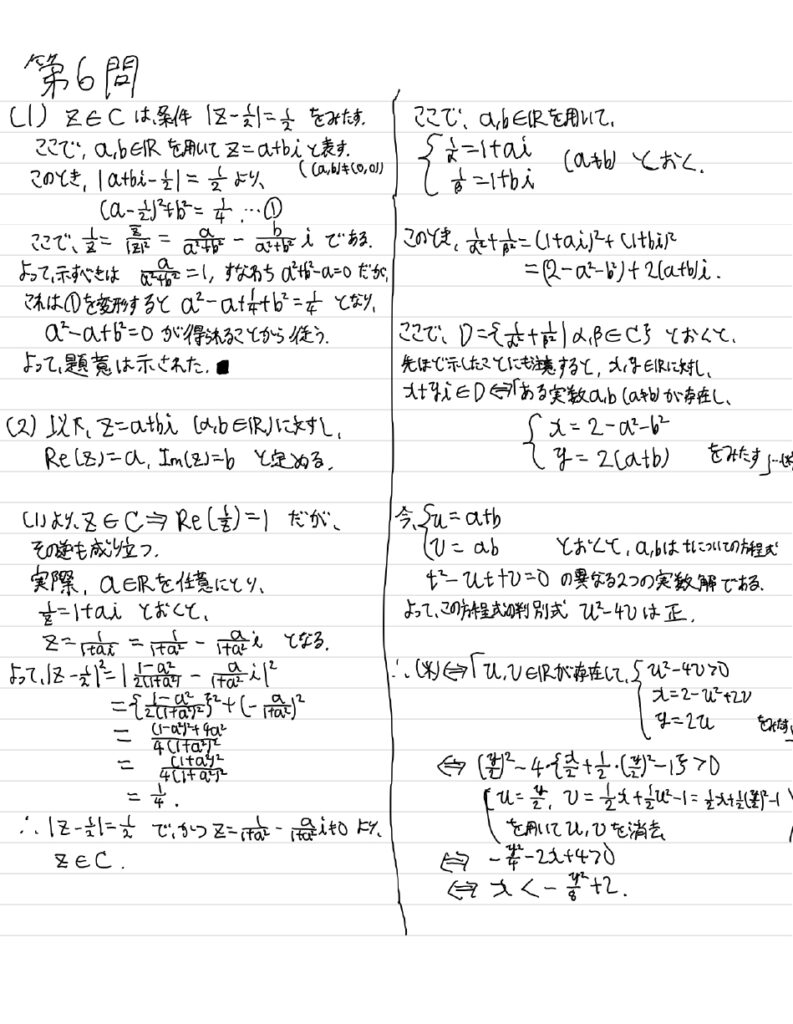 第6問
(1) z∈C は、条件 |z-1/2|=1/2 をみたす。
ここで、a,b∈ℝ を用いて z=a+bi と表す。
((a,b)≠(0,0))
このとき、|a+bi-1/2|=1/2 より、
(a-1/2)²+b²=1/4 …①
ここで、1/z = z̅/|z|² = a/(a²+b²) - b/(a²+b²) i である。
よって、示すべきは a/(a²+b²)=1, すなわち a²+b²-a=0 だが、
これは①を変形すると a²-a+1/4+b²=1/4 となり、
a²-a+b²=0 が得られることから従う。
よって、題意は示された. ■
(2) 以下、z=a+bi (a,b∈ℝ)に対し、
Re(z)=a, Im(z)=b と定める。
(1)より、z∈C⇒Re(1/z)=1 だが、
その逆も成り立つ。
実際, a∈ℝを任意にとり、
1/z=1+ai とおくと、
z=1/(1+ai) = 1/(1+a²) - a/(1+a²) i となる.
よって、|z-1/2|²=|(1-a²)/(2(1+a²)) - a/(1+a²) i|²
={(1-a²)/(2(1+a²))}²+(-a/(1+a²))²
= ((1-a²)²+4a²)/(4(1+a²)²)
= (1+a²)²/(4(1+a²)²)
= 1/4.
∴ |z-1/2|=1/2 で、かつ z=1/(1+a²) - a/(1+a²) i≠0 より、
z∈C.
ここで、a,b∈ℝを用いて、
{ 1/α=1+ai
{ 1/β=1+bi (a≠b) とおく.
このとき、1/α²+1/β²=(1+ai)²+(1+bi)²
=(2-a²-b²)+2(a+b)i.
ここで、D={1/α²+1/β² | α,β∈C} とおくと、
先ほど示したことにも注意すると, x,y∈ℝに対し、
x+yi∈D⇔「ある実数a,b (a≠b)が存在し、
{ x=2-a²-b²
{ y=2(a+b) をみたす」…(※)
今、{ u=a+b
{ v=ab とおくと、a,bはtについての方程式
t²-ut+v=0 の異なる2つの実数解である.
よって、この方程式の判別式 u²-4v は正.
∴(※)⇔「u,v∈ℝが存在して、{ u²-4v>0
{ x=2-u²+2v
{ y=2u をみたす
⇔ (y/2)²-4・{x/2+1/2・(y/2)²-1}>0
( u=y/2, v=1/2x+1/2u²-1=1/2x+1/2(y/2)²-1
を用いてu,vを消去 )
⇔ -y²/4-2x+4>0
⇔ x<-y²/8+2.